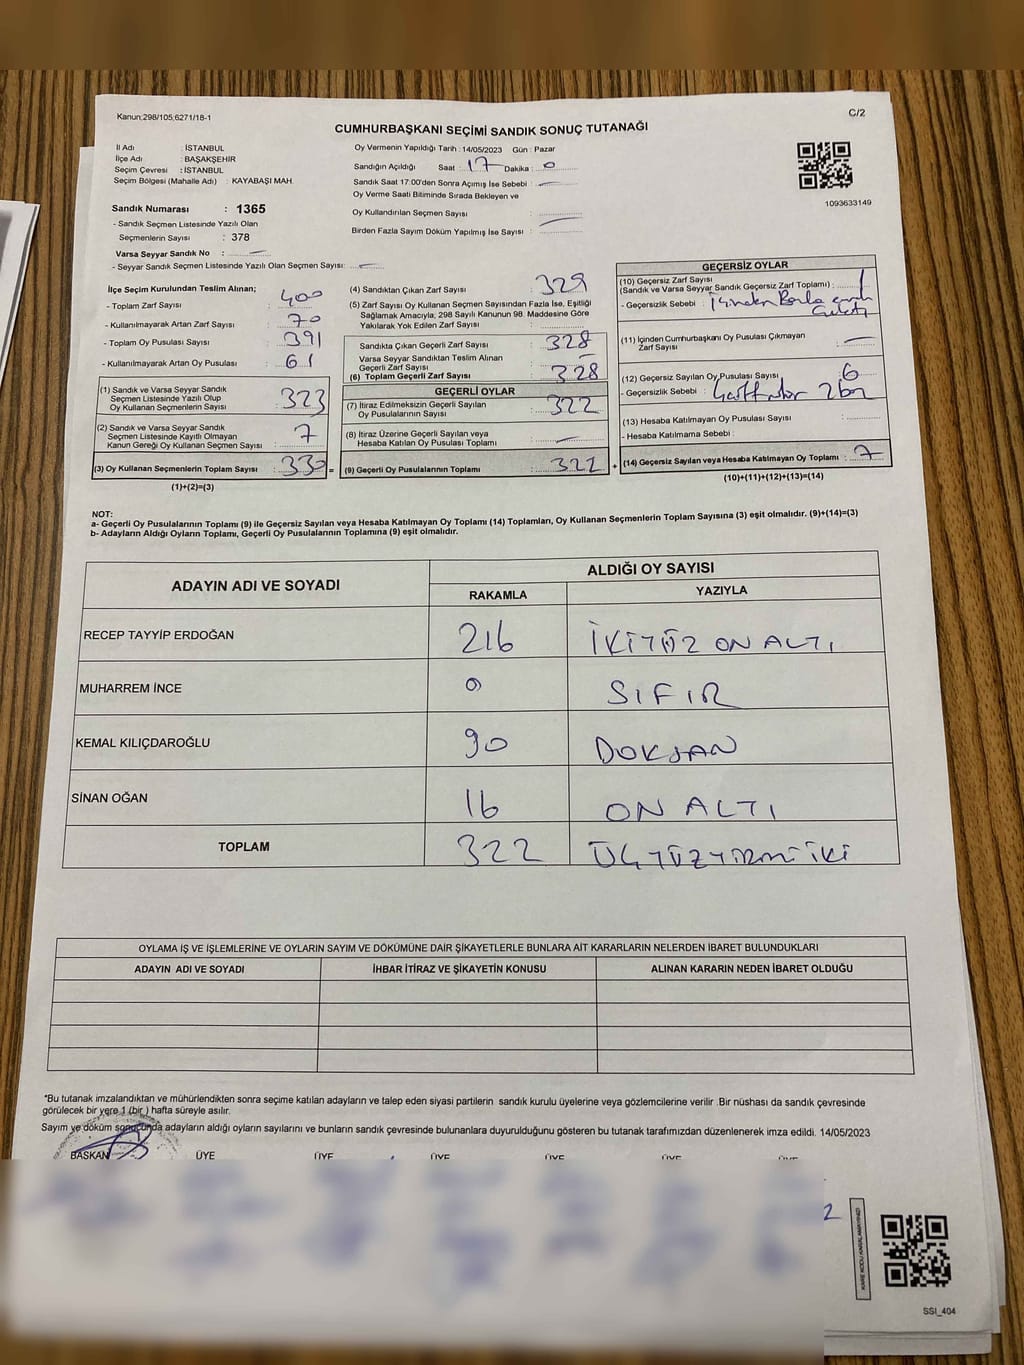 Kanun;298/105;6271/18-1
C/2
CUMHURBAŞKANI SEÇİMİ SANDIK SONUÇ TUTANAĞI
İl Adı : İSTANBUL
İlçe Adı : BAŞAKŞEHİR
Seçim Çevresi : İSTANBUL
Seçim Bölgesi (Mahalle Adı) : KAYABAŞI MAH.
Sandık Numarası : 1365
- Sandık Seçmen Listesinde Yazılı Olan
Seçmenlerin Sayısı : 378
Varsa Seyyar Sandık No : —
- Seyyar Sandık Seçmen Listesinde Yazılı Olan Seçmen Sayısı: —
Oy Vermenin Yapıldığı Tarih : 14/05/2023 Gün : Pazar
Sandığın Açıldığı Saat : 17 Dakika : 0
Sandık Saat 17:00'den Sonra Açımış İse Sebebi : —
Oy Verme Saati Bitiminde Sırada Bekleyen ve
Oy Kullandırılan Seçmen Sayısı :
Birden Fazla Sayım Döküm Yapılmış İse Sayısı : —
1093633149
İlçe Seçim Kurulundan Teslim Alınan;
- Toplam Zarf Sayısı : 400
- Kullanılmayarak Artan Zarf Sayısı : 70
- Toplam Oy Pusulası Sayısı : 391
- Kullanılmayarak Artan Oy Pusulası : 61
(1) Sandık ve Varsa Seyyar Sandık
Seçmen Listesinde Yazılı Olup
Oy Kullanan Seçmenlerin Sayısı : 323
(2) Sandık ve Varsa Seyyar Sandık
Seçmen Listesinde Kayıtlı Olmayan
Kanun Gereği Oy Kullanan Seçmen Sayısı : 7
(3) Oy Kullanan Seçmenlerin Toplam Sayısı : 330 =
(1)+(2)=(3)
(4) Sandıktan Çıkan Zarf Sayısı : 329
(5) Zarf Sayısı Oy Kullanan Seçmen Sayısından Fazla İse, Eşitliği
Sağlamak Amacıyla; 298 Sayılı Kanunun 98. Maddesine Göre
Yakılarak Yok Edilen Zarf Sayısı :
Sandıkta Çıkan Geçerli Zarf Sayısı : 328
Varsa Seyyar Sandıktan Teslim Alınan
Geçerli Zarf Sayısı : —
(6) Toplam Geçerli Zarf Sayısı : 328
GEÇERLİ OYLAR
(7) İtiraz Edilmeksizin Geçerli Sayılan
Oy Pusulalarının Sayısı : 322
(8) İtiraz Üzerine Geçerli Sayılan veya
Hesaba Katılan Oy Pusulası Toplamı : —
(9) Geçerli Oy Pusulalarının Toplamı : 322 +
GEÇERSİZ OYLAR
(10) Geçersiz Zarf Sayısı
(Sandık ve Varsa Seyyar Sandık Geçersiz Zarf Toplamı) : 1
- Geçersizlik Sebebi : İçinden
(11) İçinden Cumhurbaşkanı Oy Pusulası Çıkmayan
Zarf Sayısı : —
(12) Geçersiz Sayılan Oy Pusulası Sayısı : 6
- Geçersizlik Sebebi :
(13) Hesaba Katılmayan Oy Pusulası Sayısı :
- Hesaba Katılmama Sebebi :
(14) Geçersiz Sayılan veya Hesaba Katılmayan Oy Toplamı : 7
(10)+(11)+(12)+(13)=(14)
NOT:
a- Geçerli Oy Pusulalarının Toplamı (9) ile Geçersiz Sayılan veya Hesaba Katılmayan Oy Toplamı (14) Toplamları, Oy Kullanan Seçmenlerin Toplam Sayısına (3) eşit olmalıdır. (9)+(14)=(3)
b- Adayların Aldığı Oyların Toplamı, Geçerli Oy Pusulalarının Toplamına (9) eşit olmalıdır.
ADAYIN ADI VE SOYADI ALDIĞI OY SAYISI
RAKAMLA YAZIYLA
RECEP TAYYİP ERDOĞAN 216 İKİYÜZ ON ALTI
MUHARREM İNCE 0 SIFIR
KEMAL KILIÇDAROĞLU 90 DOKSAN
SİNAN OĞAN 16 ON ALTI
TOPLAM 322 ÜÇYÜZYİRMİİKİ
OYLAMA İŞ VE İŞLEMLERİNE VE OYLARIN SAYIM VE DÖKÜMÜNE DAİR ŞİKAYETLERLE BUNLARA AİT KARARLARIN NELERDEN İBARET BULUNDUKLARI
ADAYIN ADI VE SOYADI İHBAR İTİRAZ VE ŞİKAYETİN KONUSU ALINAN KARARIN NEDEN İBARET OLDUĞU
*Bu tutanak imzalandıktan ve mühürlendikten sonra seçime katılan adayların ve talep eden siyasi partilerin sandık kurulu üyelerine veya gözlemcilerine verilir .Bir nüshası da sandık çevresinde
görülecek bir yere 1 (bir ) hafta süreyle asılır.
Sayım ve döküm sonucunda adayların aldığı oyların sayılarını ve bunların sandık çevresinde bulunanlara duyurulduğunu gösteren bu tutanak tarafımızdan düzenlenerek imza edildi. 14/05/2023
BAŞKAN ÜYE ÜYE ÜYE ÜYE ÜYE ÜYE
SSI_404